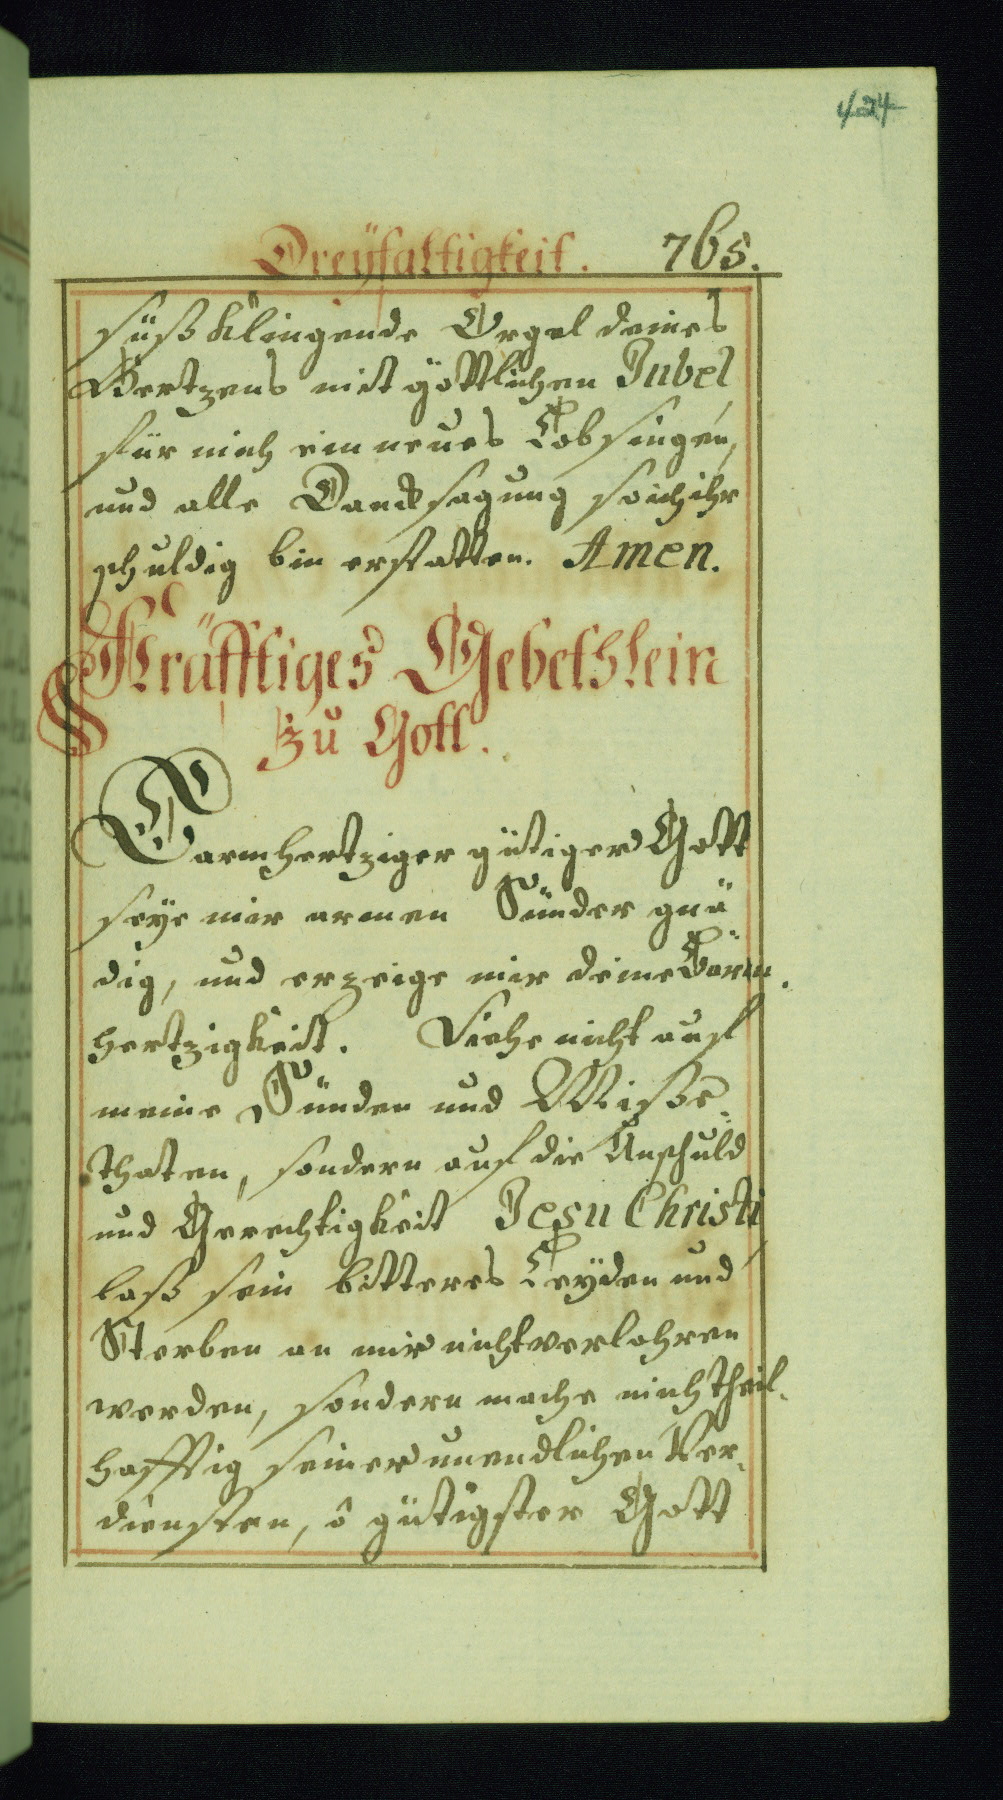 424
Dreÿfaltigkeit. 765.
süß klingende Orgel deines
Hertzens mit göttlichen Jubel
für mich ein neues Lob singen,
und alle Dancksagung so ich ihr
schuldig bin erstatten. Amen.
Kräfftiges Gebethlein
zu Gott.
Barmhertziger gütiger Gott
seÿe mir armen Sünder gnä
dig, und erzeige mir deine Barm
hertzigkeit. Siehe nicht auf
meine Sünden und Misse-
thaten, sondern auf die Unschuld
und Gerechtigkeit Jesu Christi
laß sein bitteres Leÿden und
Sterben an mir nicht verlohren
werden, sondern mache mich theil-
hafftig seiner unendlichen Ver-
diensten, ô gütigster Gott